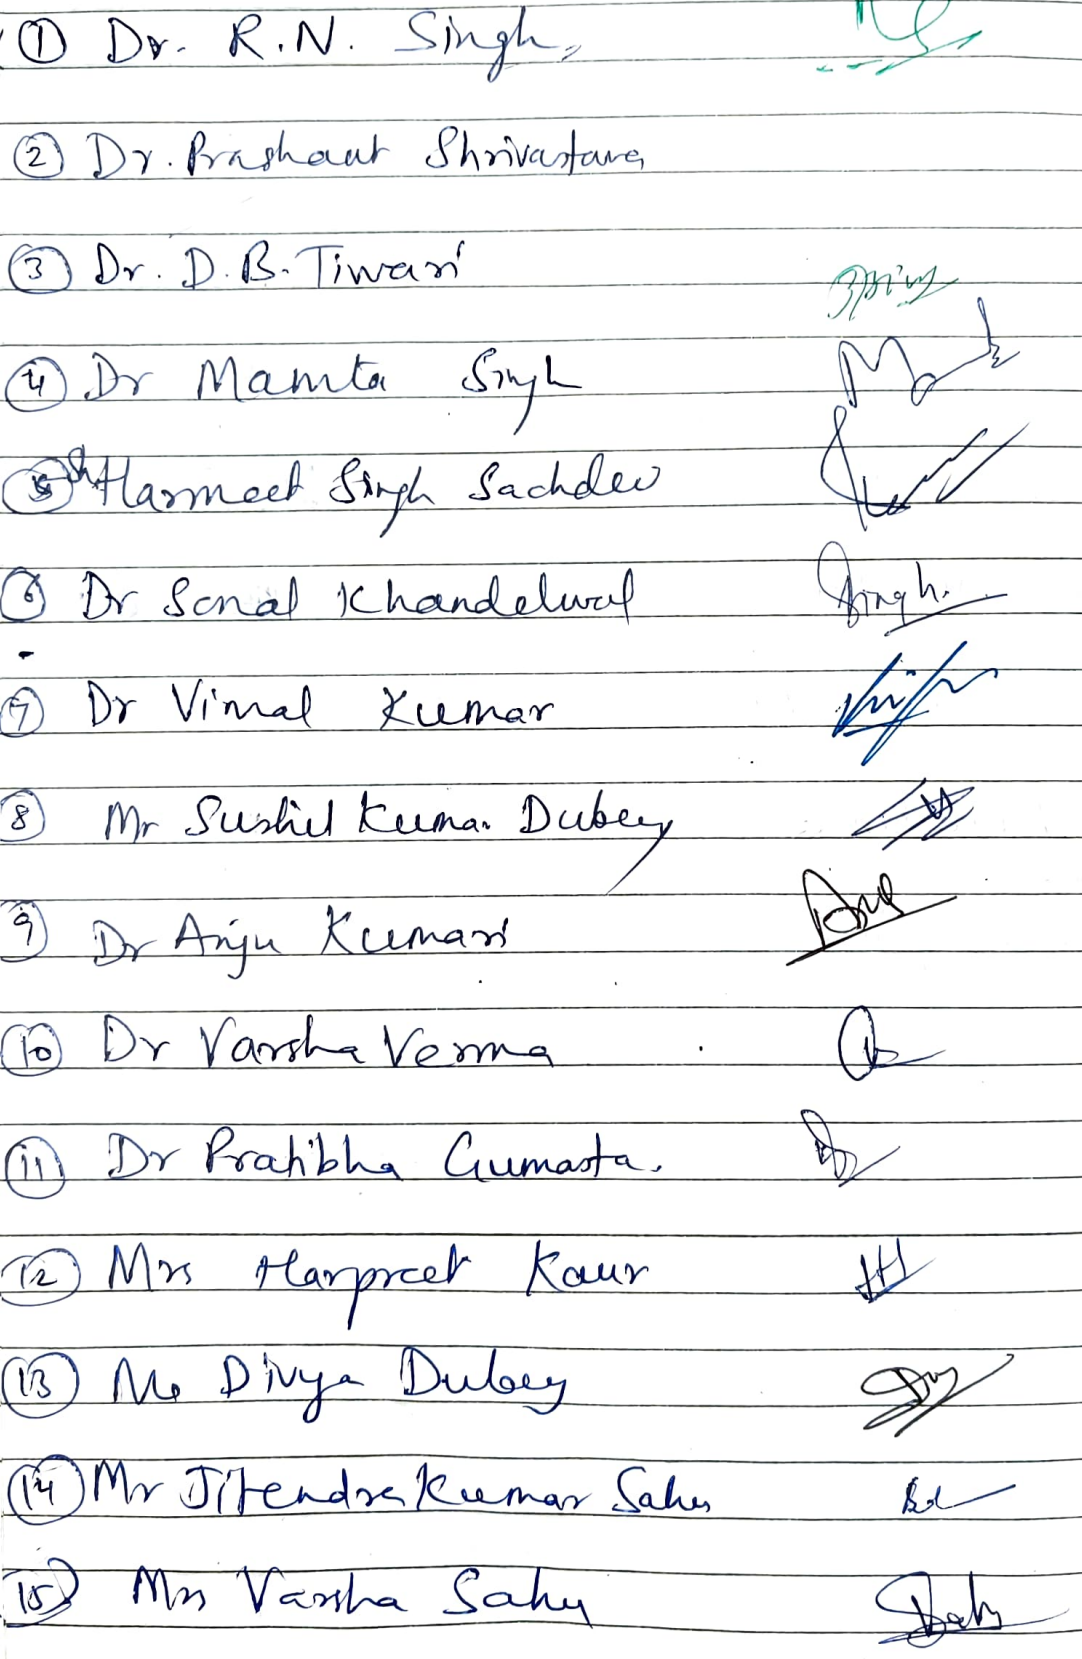 ① Dr. R.N. Singh,
② Dr. Prashant Shrivastava
③ Dr. D.B. Tiwari
④ Dr Mamta Singh
⑤ Sh Harmeet Singh Sachdev
⑥ Dr Sonal Khandelwal Singh.
⑦ Dr Vimal Kumar
⑧ Mr Sushil Kumar Dubey
⑨ Dr Anju Kumari
⑩ Dr Varsha Verma
⑪ Dr Pratibha Gumasta.
⑫ Mrs Harpreet Kaur
⑬ Ms Divya Dubey
⑭ Mr Jitendra Kumar Sahu
⑮ Mrs Varsha Sahu